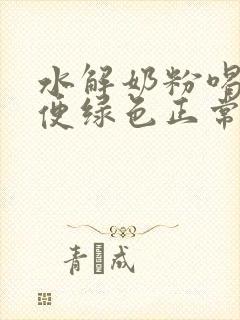 水解奶粉喝
便绿色正常
青 成